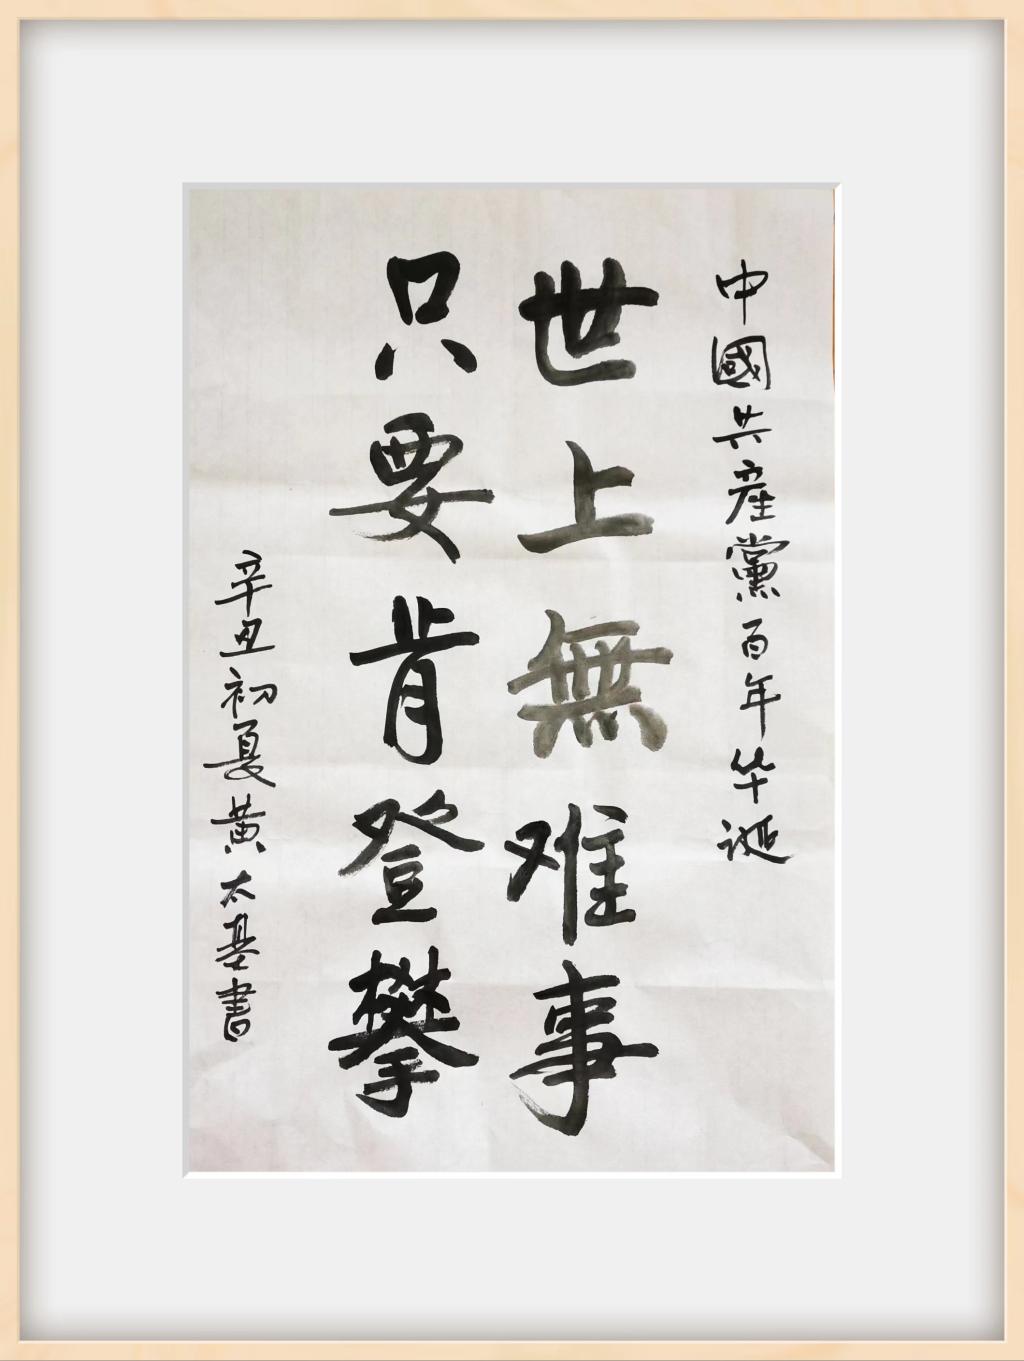 中國共産黨百年华诞
世上無难事
只要肯登攀
辛丑初夏黄太基書